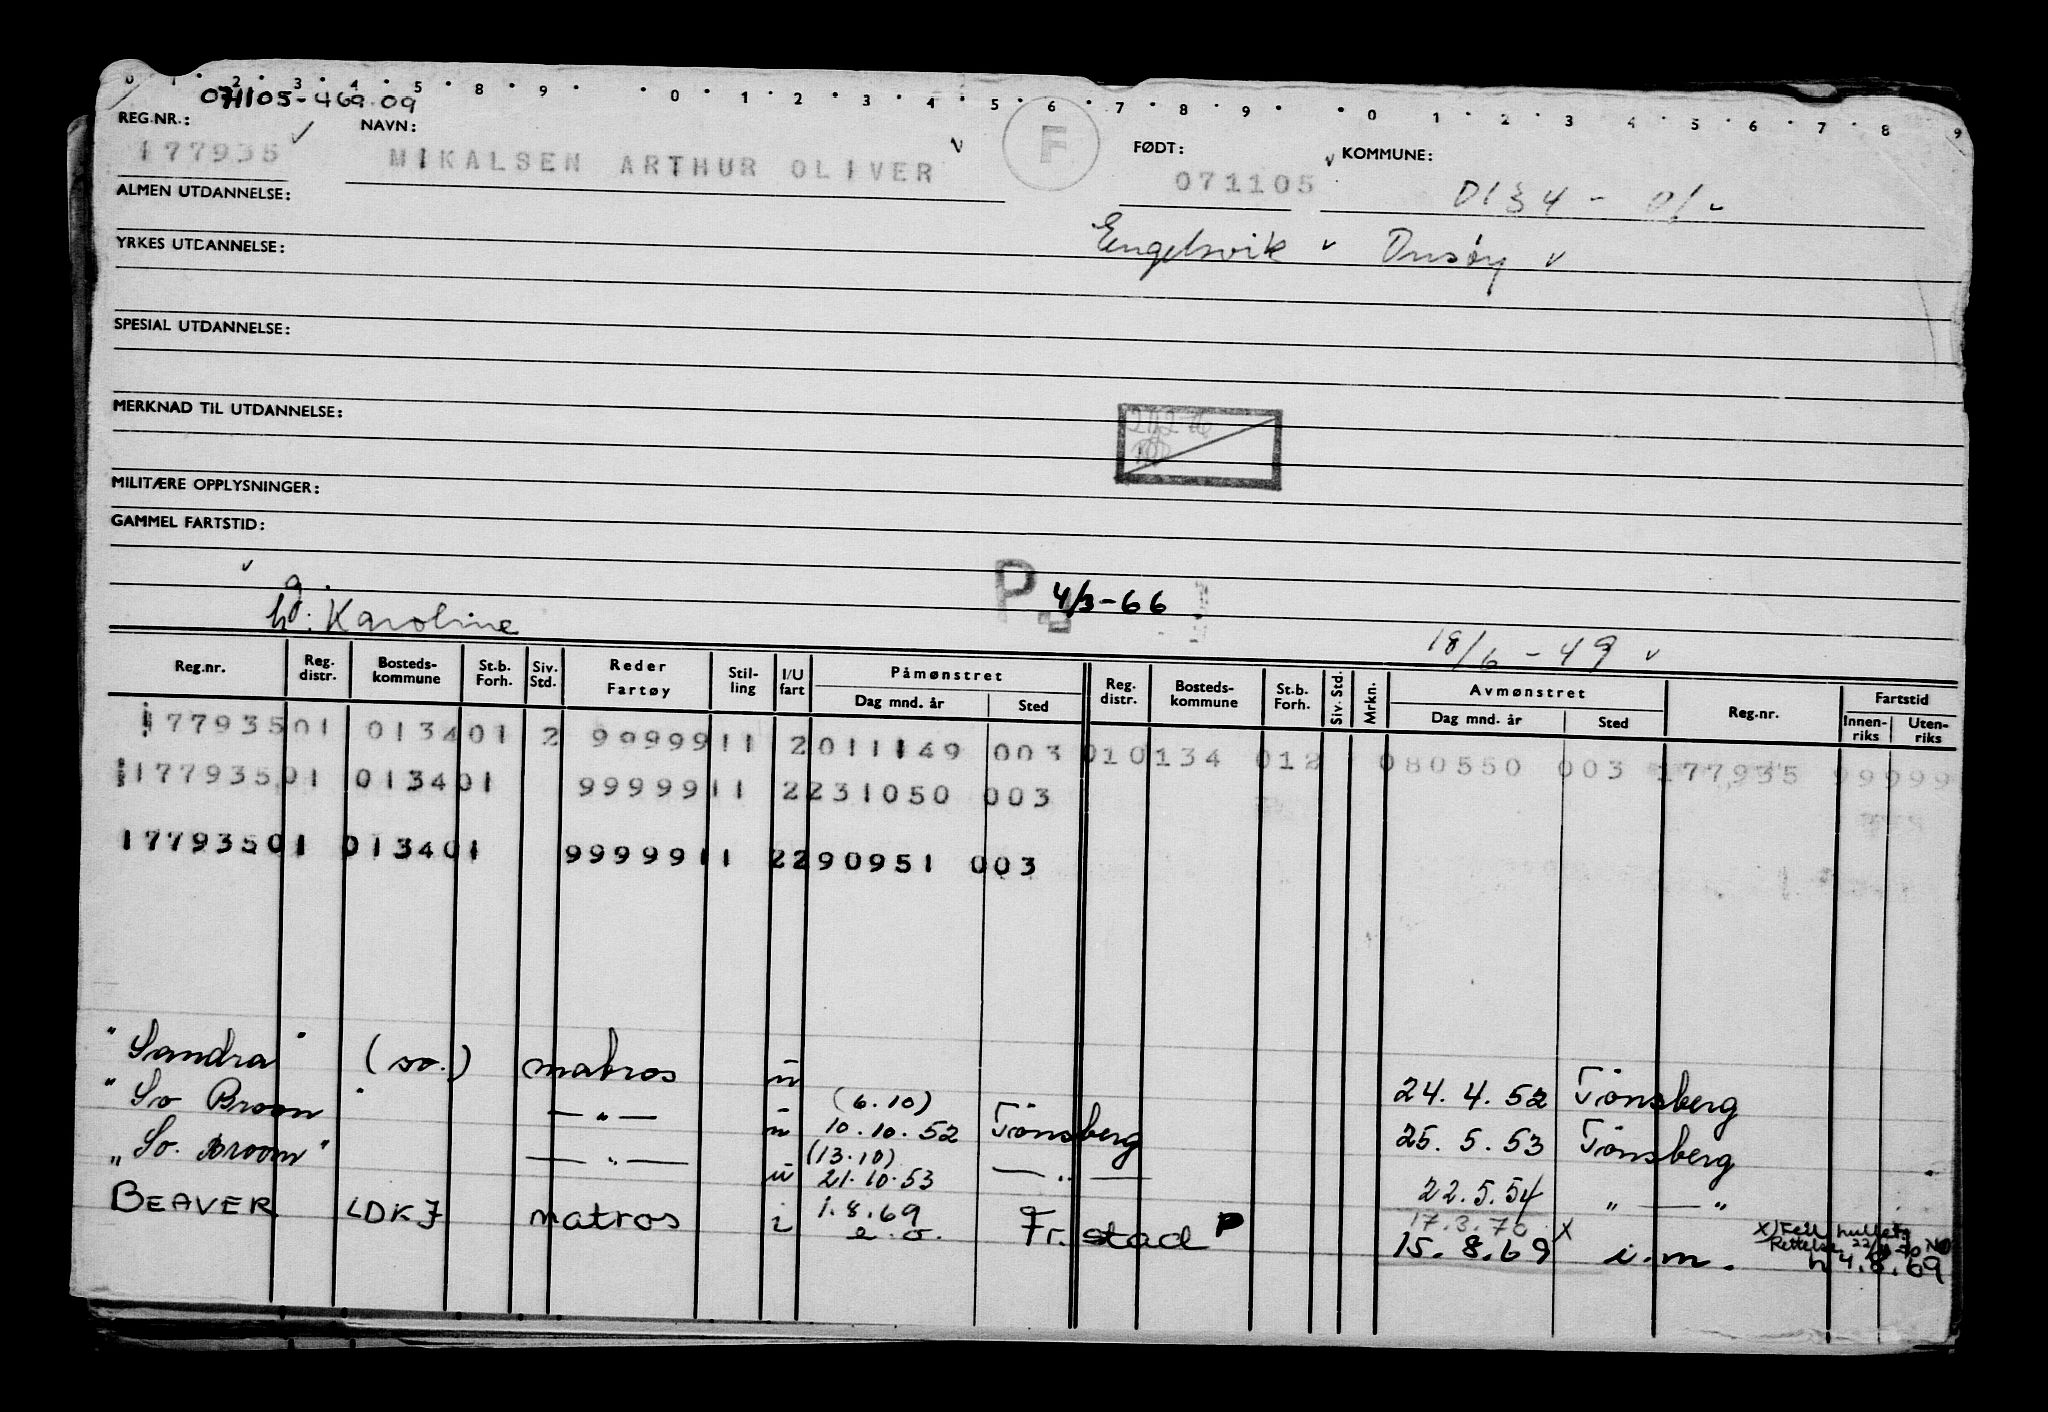 0 1 2 3 4 5 8 9 0 1 2 3 4 5 6 7 8 9 0 1 2 3 4 5 6 7 8 9
071105-469.09
REG.NR.: NAVN: FØDT: KOMMUNE:
177935 MIKALSEN ARTHUR OLIVER F 071105 0134-01
ALMEN UTDANNELSE:
Engelsvik Onsøy
YRKES UTDANNELSE:
SPESIAL UTDANNELSE:
MERKNAD TIL UTDANNELSE:
MILITÆRE OPPLYSNINGER:
GAMMEL FARTSTID:
g.
h: Karoline P. 4/3-66 18/6-49
Reg.nr. Reg. distr. Bosteds-kommune St.b. Forh. Siv. Std. Reder Fartøy Stil-ling I/U fart Påmønstret Dag mnd. år Sted Reg. distr. Bosteds-kommune St.b. Forh. Siv. Std. Mrkn. Avmønstret Dag mnd. år Sted Reg.nr. Fartstid Innen-riks Uten-riks
17793501 013401 2 9999911 2011149 003 010134 012 080550 003 177935 99999
17793501 013401 9999911 2231050 003
17793501 013401 9999911 2290951 003
"Sandra" (so.) matros u 24.4.52 Tönsberg
"So Broon" — " — u (6.10) 10.10.52 Tönsberg 25.5.53 Tönsberg
"So. Broon" — " — u (13.10) 21.10.53 — " — 22.5.54 " — "
BEAVER LDKJ matros i 1.8.69 e.o. Fr.stad P 17.3.70 x
15.8.69 i.m. x) Feil hullet
Rettelse
h 4.8.69